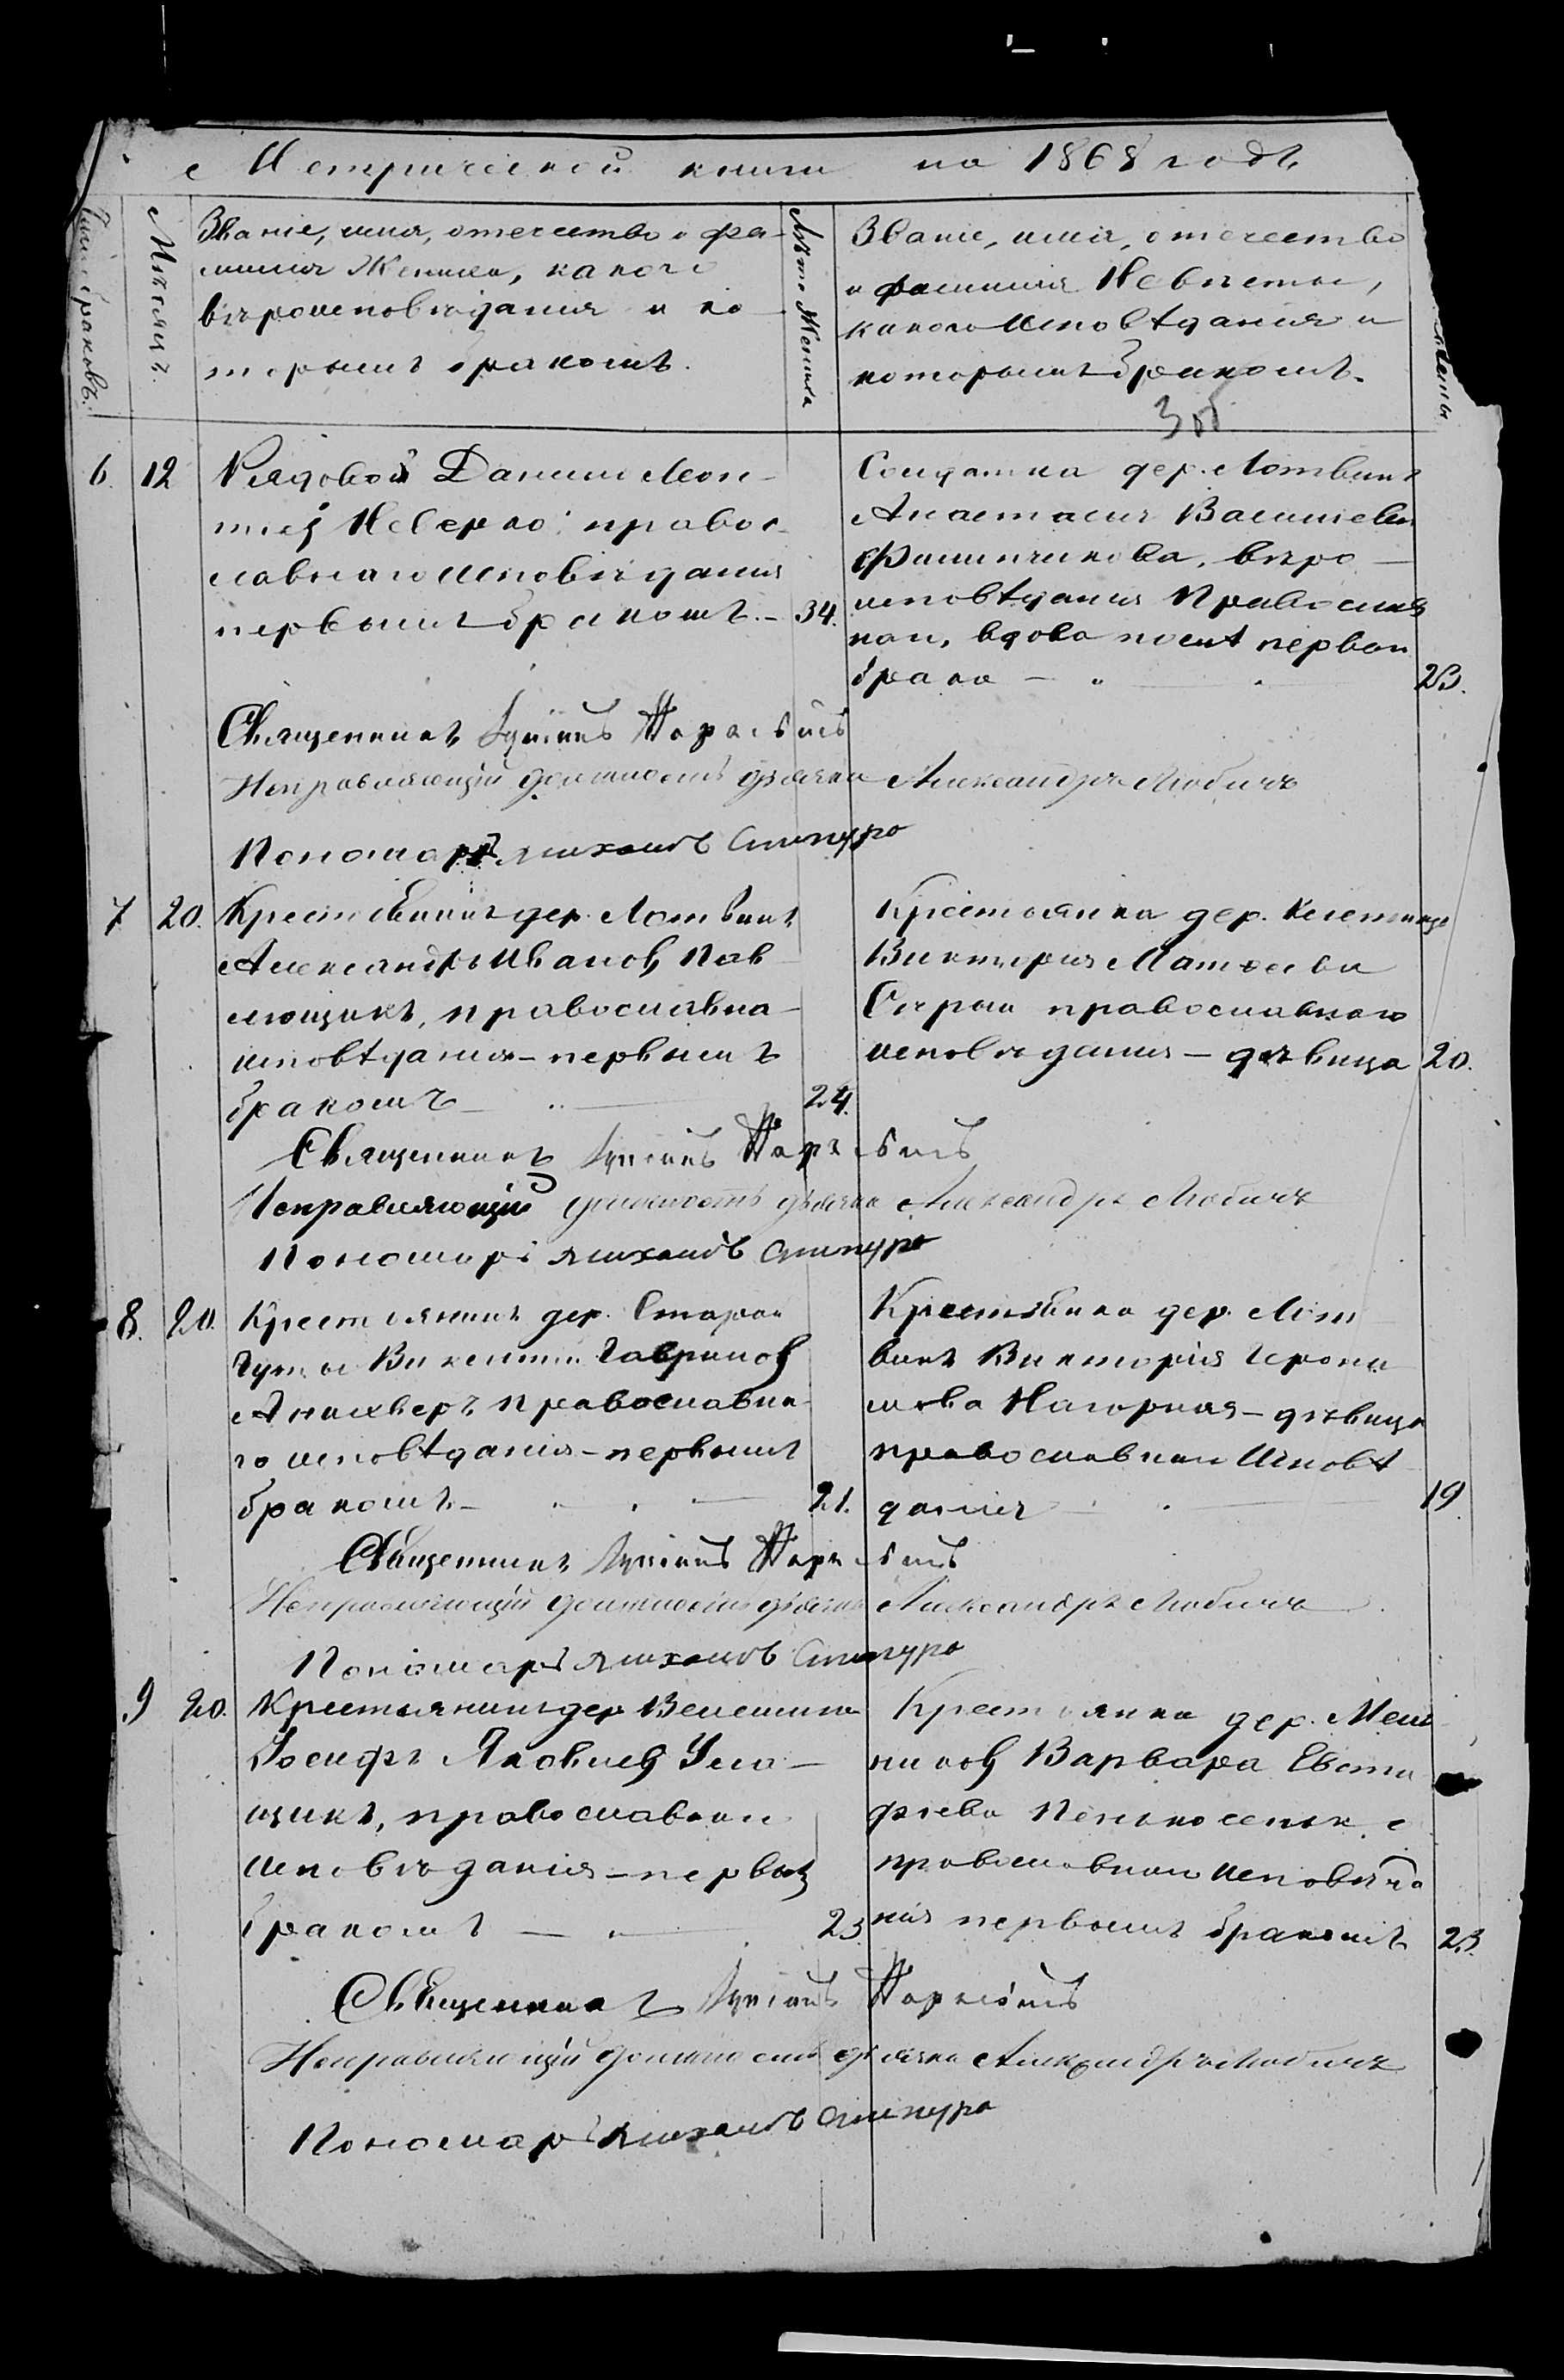 Метрической книги на 1868 годъ
Счетъ браковъ.
Мѣсяцъ.
Званіе, имя, отечество и фа-
милия Жениха, какого
вѣроисповѣданія и ко-
торымъ бракомъ.
Лѣта Жениха
Званіе, имя, отечество
и фамилия Невѣсты,
какого исповѣданія и
которымъ бракомъ.
6. 12
Рядовой Данило Леон-
тіев Неверко: правос-
лавнаго исповѣданія
первымъ бракомъ. - 34.
Солдатка дер. Лотвинъ
Анастасия Василиева
вѣро
исповѣданія Православ
ном, вдова послѣ первом
брака 23.
Священникъ
Исправляющій должность дьячка Александръ Любичъ
Пономарь Михаилъ
7 20.
Крестьянинъ дер. Лотвинъ
Александръ Иванов Пав
лющикъ, православна-
исповѣданія - первымъ
бракомъ 24.
Крестьянка дер.
Виктория Матѳеева
православнаго
исповѣданія - дѣвица 20.
Священникъ
Исправляющій должность дьячка Александръ Любичъ
Пономарь Михаилъ
8. 20.
Крестьянинъ дер. Старои
Гуты Викентий Гаврилов
православна
го исповѣданія - первымъ
бракомъ - 21.
Крестьянка дер. Лот
винъ Викторія Герони
мова Нагорная - дѣвица
православнаи исповѣ
данія 19.
Священникъ
Исправляющій должность дьячка Александръ Любичъ
Пономарь Михаилъ
9 20.
Крестьянинъ дер
Іосифъ Яковлев
щикъ, православнаи
исповѣданія - первым
бракомъ 23.
Крестьянка дер.
Варвара Евста
фиева
православнаи исповѣда
нія первымъ бракомъ 23.
Священникъ
Исправляющій должность дьячка Александръ Любичъ
Пономарь Михаилъ